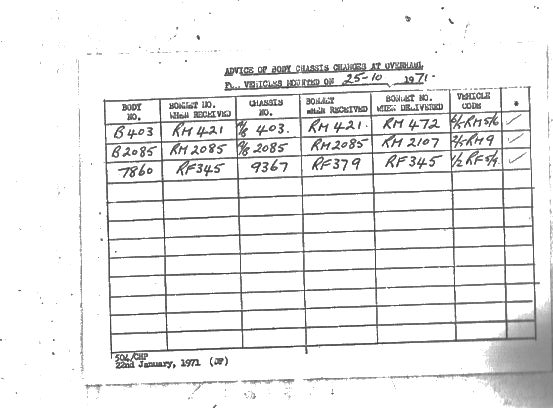 ADVICE OF BODY CHASSIS CHANGES AT OVERHAUL
VEHICLES MOUNTED ON 25-10 1971.
BODY NO. BONNET NO. WHEN RECEIVED CHASSIS NO. BONNET WHEN RECEIVED BONNET NO. WHEN DELIVERED VEHICLE CODE *
B403 RM421 403. RM421. RM472 6/5RM5/6 ✓
B2085 RM2085 2085 RM2085 RM2107 2/5RM9 ✓
7860 RF345 9367 RF379 RF345 1/2 RF5/4 ✓
504/CHP
22nd January, 1971 (JF)